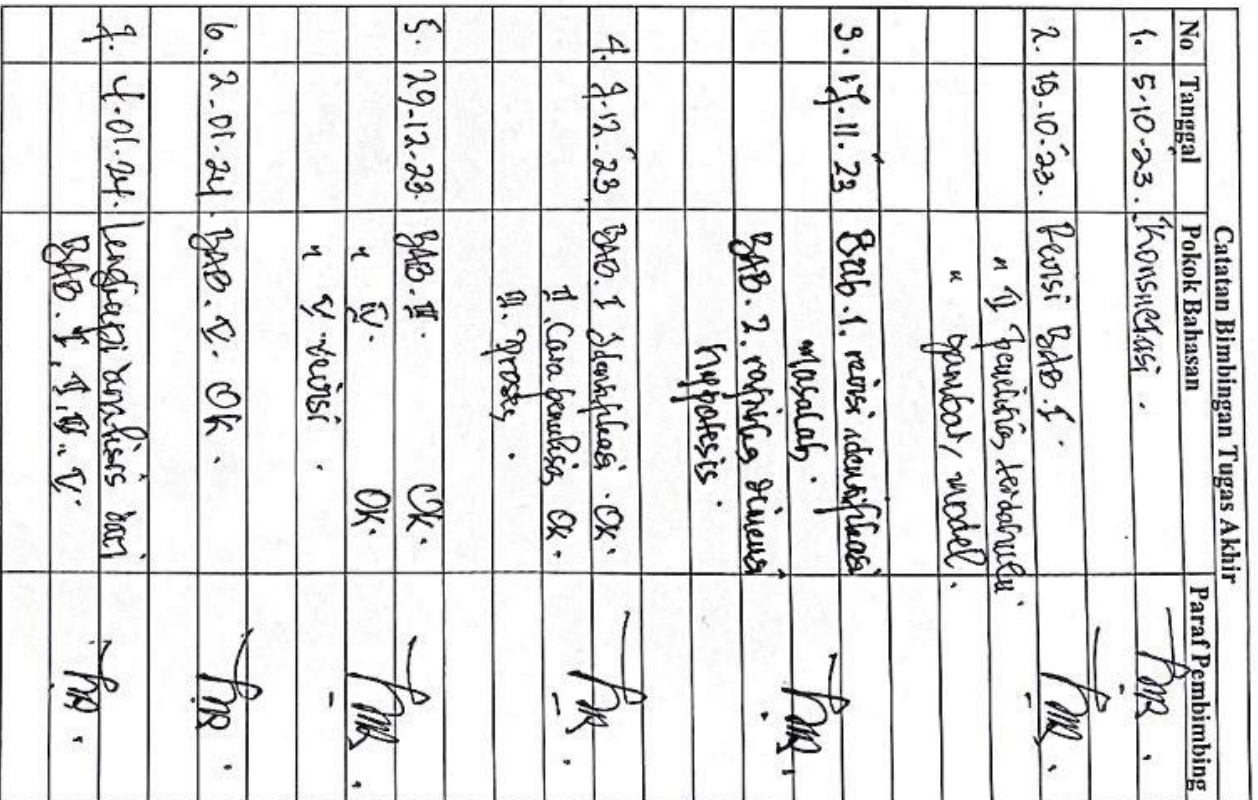 Catatan Bimbingan Tugas Akhir
No Tanggal Pokok Bahasan Paraf Pembimbing
1. 5-10-23. Konsultasi.
2. 19.10.23. Revisi BAB. I.
" II penelitian terdahulu.
" gambar, model.
3. 17.11.23 Bab. 1. revisi identifikasi
masalah.
BAB. 2. dimensi
hipotesis.
4. 7.12.23. BAB. I Identifikasi. OK.
II Cara penulisan OK.
III. Proses.
5. 29-12-23. BAB. III. OK.
" IV. OK.
" V revisi.
6. 2.01.24. BAB. V. OK.
7. 4.01.24. Lengkapi dari
BAB. I, II, III. V.